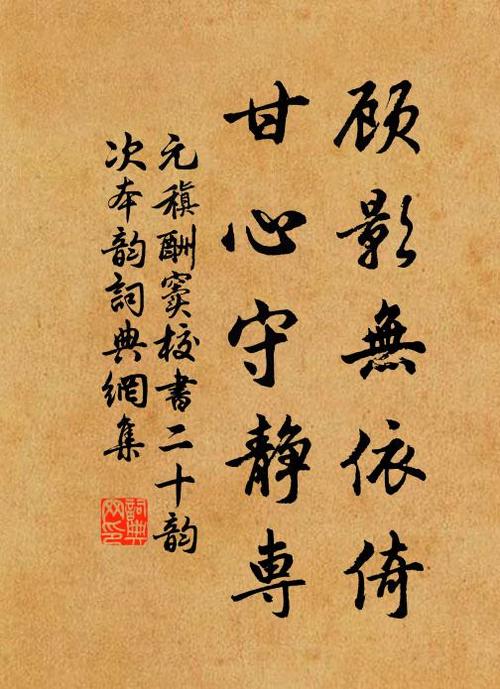 顾影無依倚
甘心守静専
元稹酬窦校書二十韵
次本韵詞典網集
詞典網印